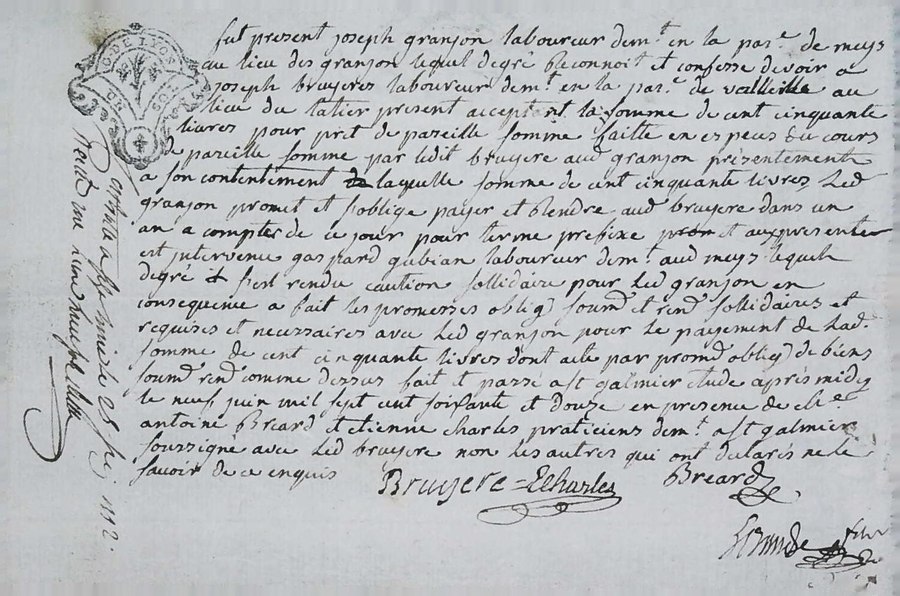 fut present joseph granjon laboureur dem.t en la par.e de meys
au lieu des granjon lequel degré Reconnoit et confesse devoir a
joseph bruyeres laboureur dem.t en la par.e de valleille au
lieu du tatier present acceptant la somme de cent cinquante
livres pour pret de pareille somme faitte en especes du cours
de pareille somme par ledit bruyere aud granjon présentement
a son contentement laquelle somme de cent cinquante livres Led
granjon promet et s'oblige payer et Rendre aud bruyere dans un
an a compter de ce jour pour terme prefixe et aux presentes
est intervenu gaspard gubian laboureur dem.t aud meys lequel
degré s'est rendu caution sollidaire pour Led granjon en
consequence a fait les promesses oblig) soum) et ren) sollidaires et
requises et necessaires avec Led granjon pour le payement de Lad.
somme de cent cinquante livres dont acte par prom) oblig) de biens
soum) ren) comme dessus fait et passé a st galmier etude après midy
le neuf juin mil sept cent soixante et douze en presence de
antoine Breard et etienne charles praticiens dem.t a st galmier
soussigné avec Led bruyere non les autres qui ont declarés ne le
savoir de ce enquis
Bruyere = Echarles Breard
G. DE LYON